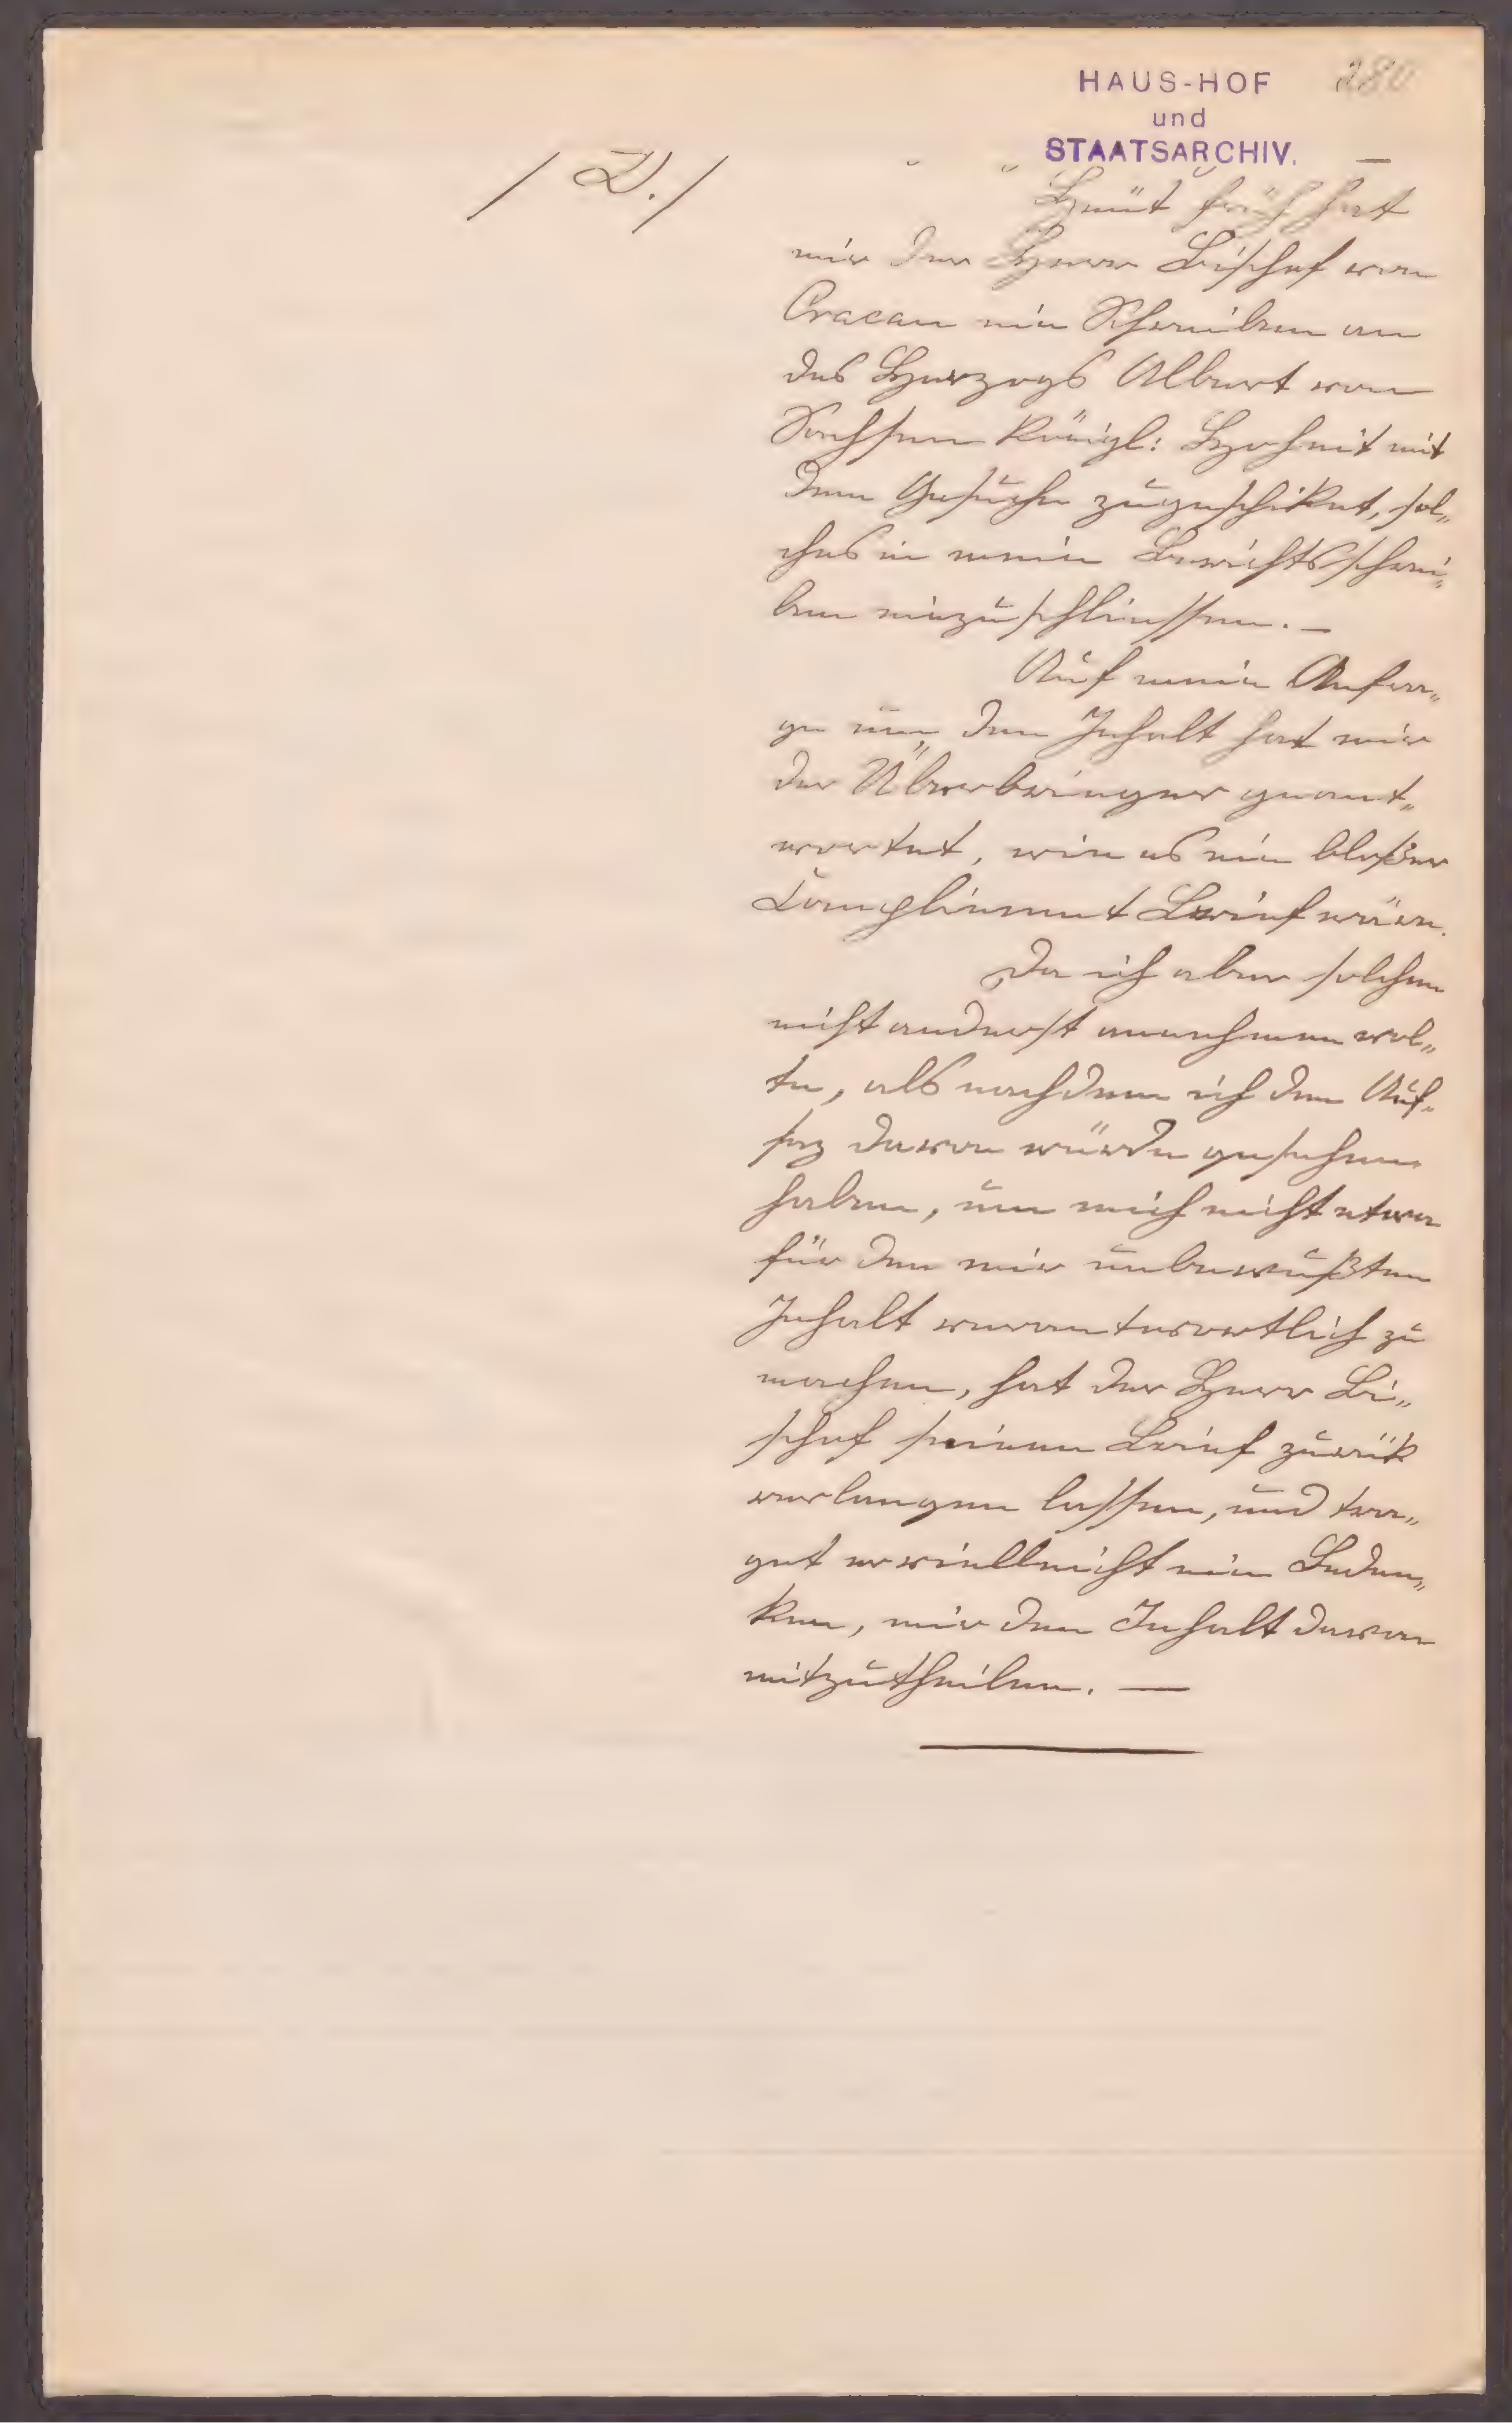 HAUS-HOF
und
STAATSARCHIV.
280
/ D. /
Heüt früh hat
mir der Herr Bischof von
Cracau ein Schreiben an
des Herzogs Albert von
Sachsen Königl: Hoheit mit
dem Gesuche zugeschiket, sol„
ches in mein Berichtsschrei„
ben einzuschliessen. —
Auf meine Anfra„
ge um den Inhalt hat mir
der Überbringer geant„
wortet, wie es ein bloßer
Compliment Brief wäre.
Da ich aber solchen
nicht anderst annehmen wol„
te, als nachdem ich den Auf„
saz davon würde gesehen
haben, um mich nicht etwa
für den mir unbewußten
Inhalt verantwortlich zu
machen, hat der Herr Bi„
schof seinen Brief zurük
verlangen lassen, und tra„
get er vielleicht ein Beden„
ken, mir den Inhalt davon
mitzutheilen. —